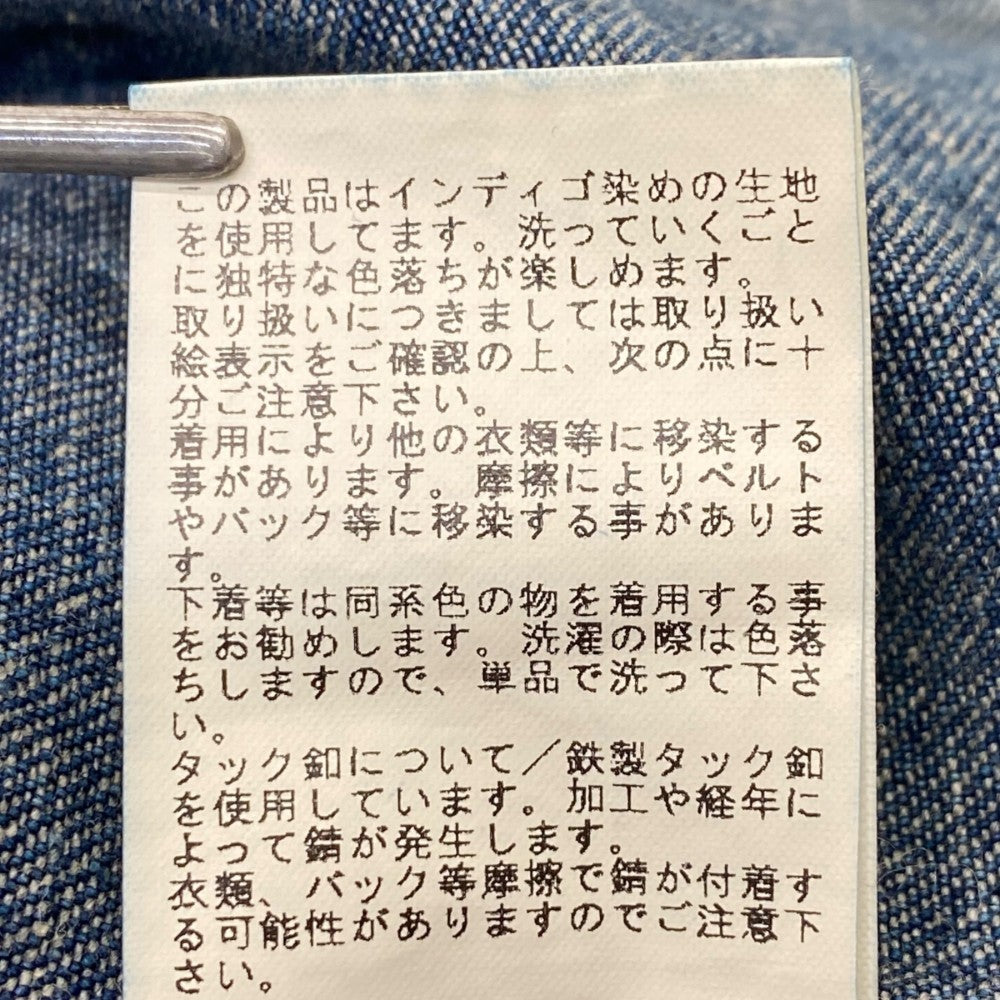 この製品はインディゴ染めの生地
を使用してます。洗っていくごと
に独特な色落ちが楽しめます。
取り扱いにつきましては取り扱い
絵表示をご確認の上、次の点に十
分ご注意下さい。
着用により他の衣類等に移染する
事があります。摩擦によりベルト
やバック等に移染する事がありま
す。
下着等は同系色の物を着用する事
をお勧めします。洗濯の際は色落
ちしますので、単品で洗って下さ
い。
タック釦について／鉄製タック釦
を使用しています。加工や経年に
よって錆が発生します。
衣類、バック等摩擦で錆が付着す
る可能性がありますのでご注意下
さい。